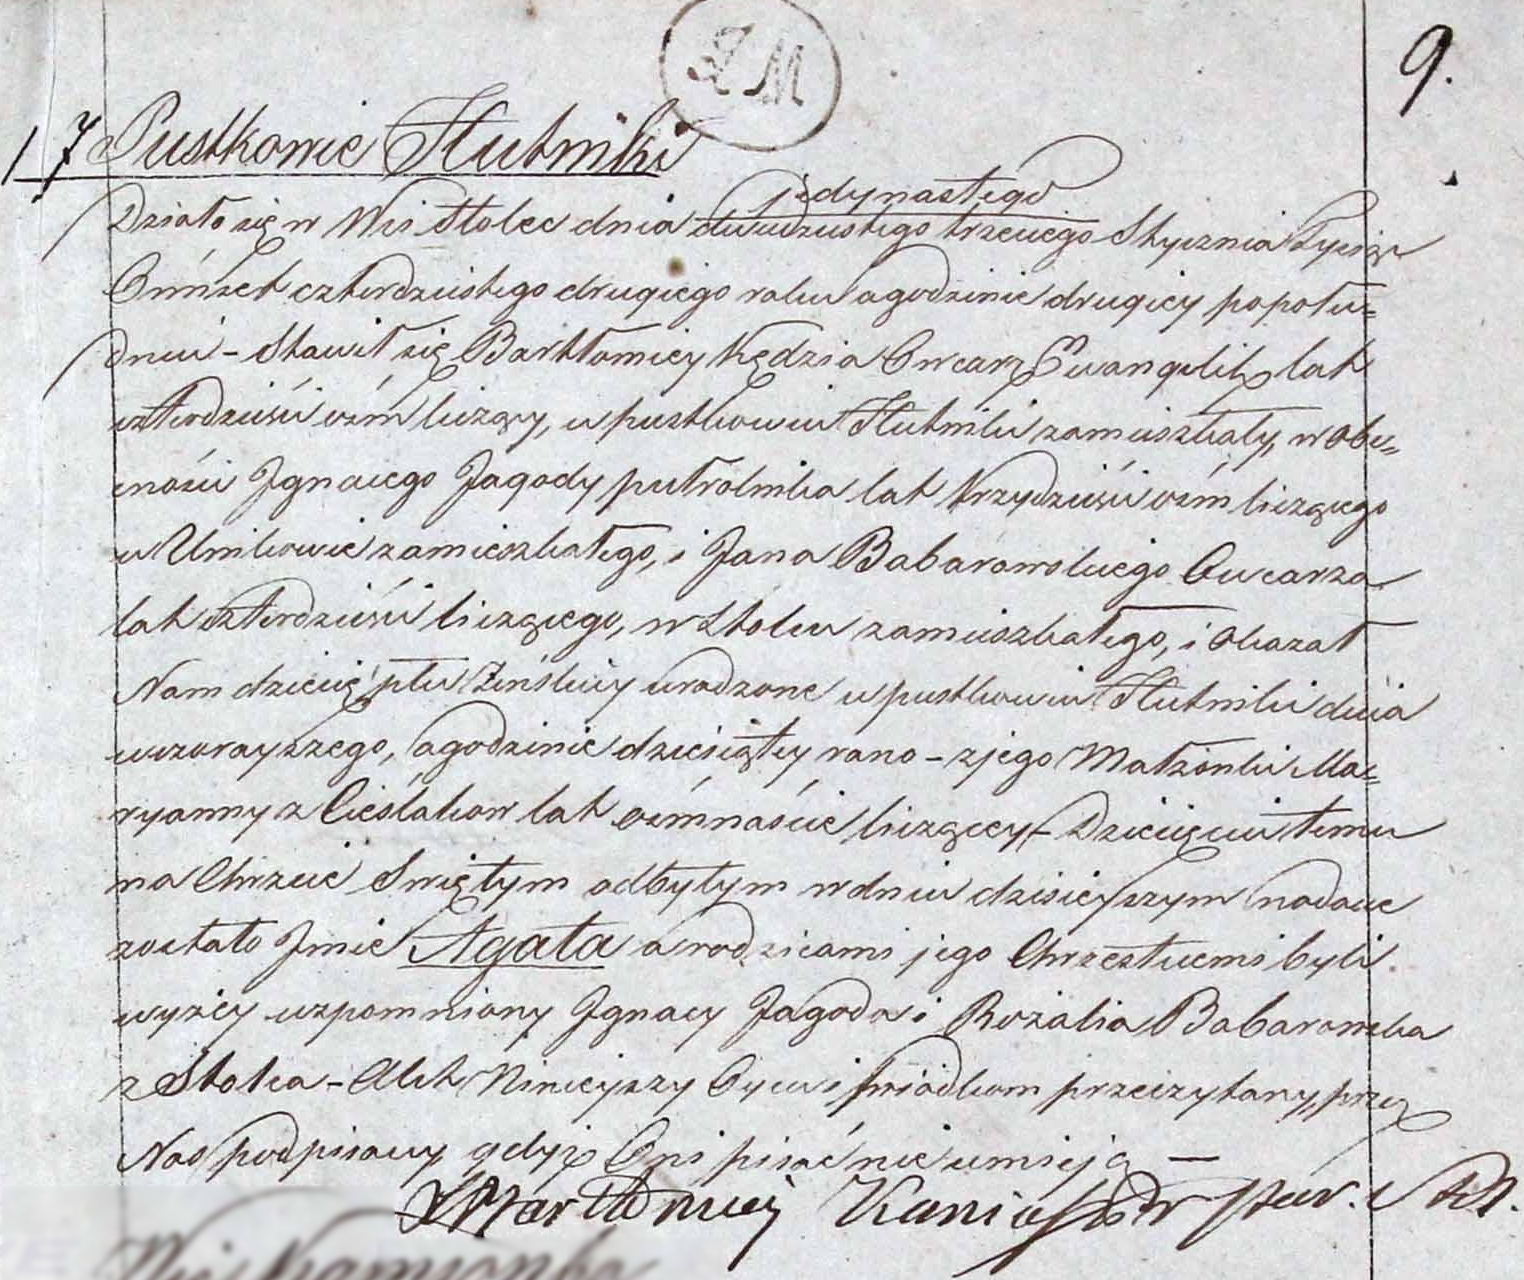 J M
9.
17 Pustkowie Hutniki
jedynastego
Działo się w Wsi Stolec dnia dwudziestego trzeciego Stycznia Tysiąc
Ośmset czterdziestego drugiego roku o godzinie drugiey popołu=
dniu - Stawił się Bartłomiey Kędzia Owcarz Ewangelik lat
czterdzieści ośm liczący, w pustkowiu Hutniki zamieszkały, w obe=
cności Ignacego Jagody putrolnika lat trzydzieści ośm liczącego
w Unikowie zamieszkałego, i Jana Babarowskiego Owcarza
lat czterdzieści liczącego, w Stolcu zamieszkałego, i okazał
Nam dziecię płci Żeńskiey urodzone w pustkowiu Hutniki dnia
wczorayszego, o godzinie dziesiątey rano - z jego Małżonki Ma=
ryanny z Cieślaków lat ośmnaście liczącey - Dziecięciu temu
na Chrzcie Swiętym odbytym w dniu dzisieyszym nadane
zostało Imie Agata a rodzicami jego Chrzestnemi byli
wyżey wzpomniony Ignacy Jagoda i Rozalia Babarowska
z Stolca - Akt Ninieyszy Oycu i świadkom przeczytany, przez
Nas podpisany gdyż Oni pisać nie umieją —
X Bartłomiey Kania
Wieś Kamionka